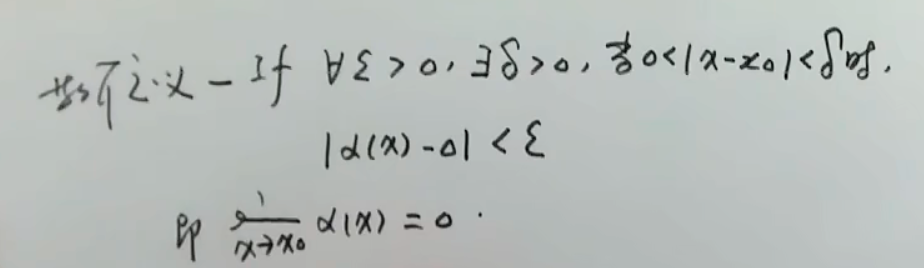 数学定义 - If ∀ε>0, ∃δ>0, 当0<|x-x₀|<δ时,
|α(x)-0|<ε
即 lim x→x₀ α(x)=0.